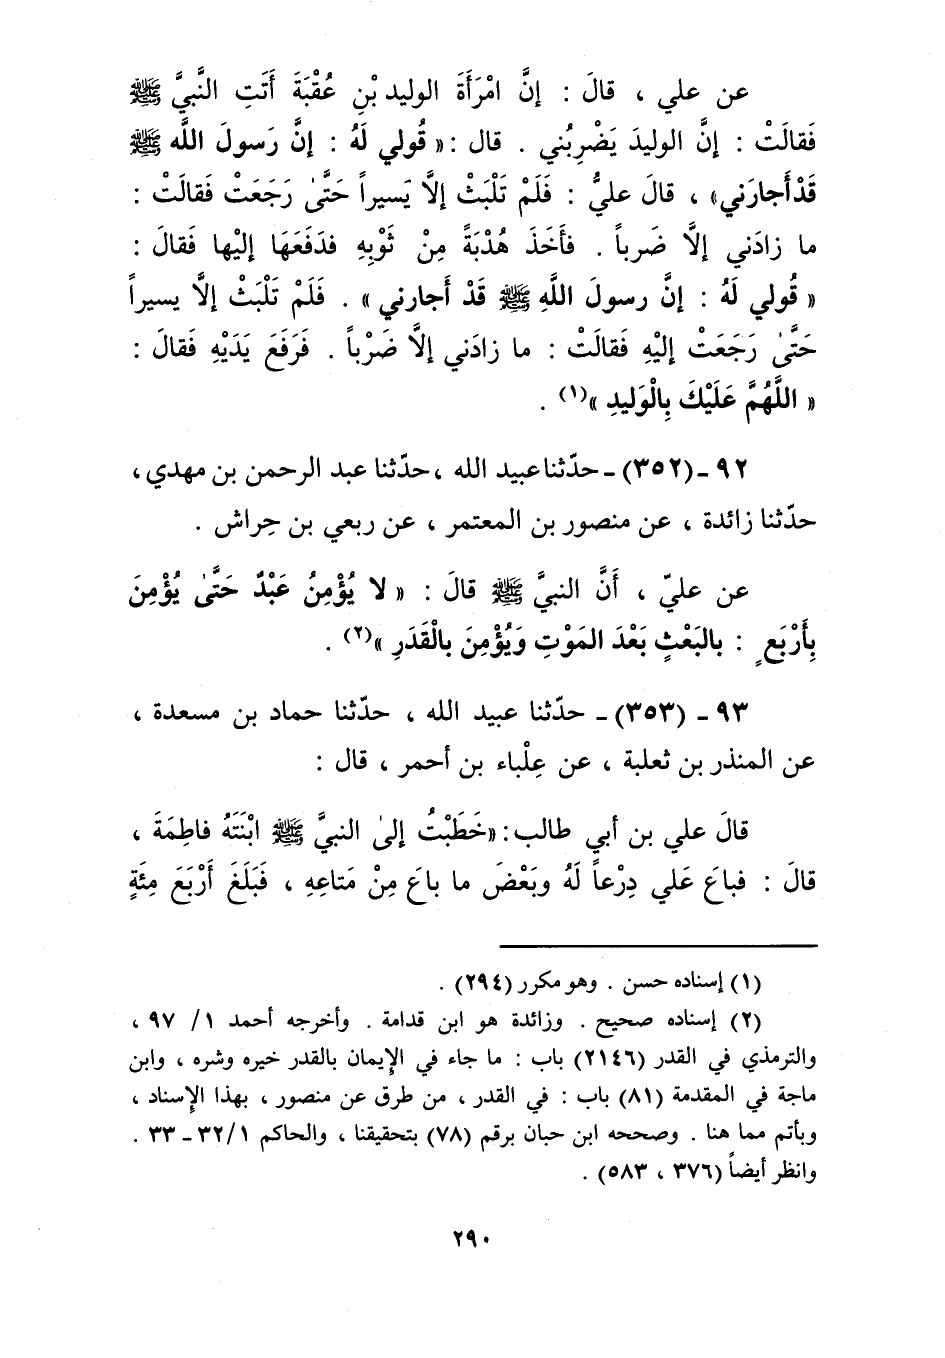 عن علي ، قالَ : إنَّ امْرَأَةَ الوليد بْنِ عُقْبَةَ أَتَتِ النَّبيَّ ﷺ
فَقالَتْ : إنَّ الوليدَ يَضْرِبُني . قال : « قُولي لَهُ : إنَّ رَسولَ اللَّه ﷺ
قَدْ أَجارَني » ، قالَ عليٌّ : فَلَمْ تَلْبَثْ إلَّا يَسيراً حَتَّىٰ رَجَعَتْ فَقالَتْ :
ما زادَني إلَّا ضَرباً . فأَخَذَ هُدْبَةً مِنْ ثَوْبِهِ فدَفَعَهَا إليْها فَقالَ :
« قُولي لَهُ : إنَّ رسولَ اللَّهِ ﷺ قَدْ أَجارني » . فَلَمْ تَلْبَثْ إلَّا يسيراً
حَتَّىٰ رَجَعَتْ إليْهِ فَقالَتْ : ما زادَني إلَّا ضَرْباً . فَرَفَعَ يَدَيْهِ فَقالَ :
« اللَّهُمَّ عَلَيْكَ بِالْوَليدِ »(١) .
٩٢ - (٣٥٢) - حدّثنا عبيد الله ، حدّثنا عبد الرحمن بن مهدي ،
حدّثنا زائدة ، عن منصور بن المعتمر ، عن ربعي بن حِراش .
عن عليّ ، أَنَّ النبيَّ ﷺ قالَ : « لا يُؤْمِنُ عَبْدٌ حَتَّىٰ يُؤْمِنَ
بِأَرْبَعٍ : بالبَعْثِ بَعْدَ المَوْتِ وَيُؤْمِنَ بالْقَدَرِ »(٢) .
٩٣ - (٣٥٣) - حدّثنا عبيد الله ، حدّثنا حماد بن مسعدة ،
عن المنذر بن ثعلبة ، عن عِلْباء بن أحمر ، قال :
قالَ علي بن أبي طالب : « خَطَبْتُ إلىٰ النبيَّ ﷺ ابْنَتَهُ فاطِمَةَ ،
قالَ : فباعَ عَلي دِرْعاً لَهُ وبَعْضَ ما باعَ مِنْ مَتاعِهِ ، فَبَلَغَ أَرْبَعَ مِئَةٍ
(١) إسناده حسن . وهو مكرر (٢٩٤) .
(٢) إسناده صحيح . وزائدة هو ابن قدامة . وأخرجه أحمد ١/ ٩٧ ،
والترمذي في القدر (٢١٤٦) باب : ما جاء في الإيمان بالقدر خيره وشره ، وابن
ماجة في المقدمة (٨١) باب : في القدر ، من طرق عن منصور ، بهذا الإسناد ،
وبأتم مما هنا . وصححه ابن حبان برقم (٧٨) بتحقيقنا ، والحاكم ١/ ٣٢ - ٣٣ .
وانظر أيضاً (٣٧٦ ، ٥٨٣) .
٢٩٠